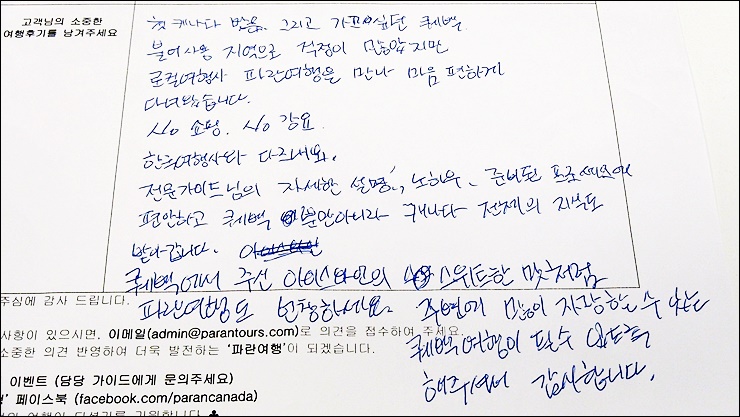 고객님의 소중한
여행후기를 남겨주세요
첫 캐나다 방문. 그리고 가고싶던 퀘백
불어사용 지역으로 걱정이 많았지만
로컬여행사 파란여행을 만나 마음 편하게
다녀왔습니다.
No 쇼핑. No 강요.
한국여행사와 다르네요.
전문가이드님의 자세한 설명, 노하우, 준비된 프로세스에
편안하고 퀘백 뿐만아니라 캐나다 전체의 지식도
받아갑니다.
퀘백에서 주신 아이스와인의 스위트한 맛처럼
파란여행도 번창하세요. 주변에 많이 자랑할 수 있는
퀘백여행이 될수 있도록
해주셔서 감사합니다.
주심에 감사 드립니다.
사항이 있으시면, 이메일(admin@parantours.com)로 의견을 접수하여 주세요.
소중한 의견 반영하여 더욱 발전하는 '파란여행'이 되겠습니다.
이벤트 (담당 가이드에게 문의주세요)
' 페이스북 (facebook.com/parancanada)